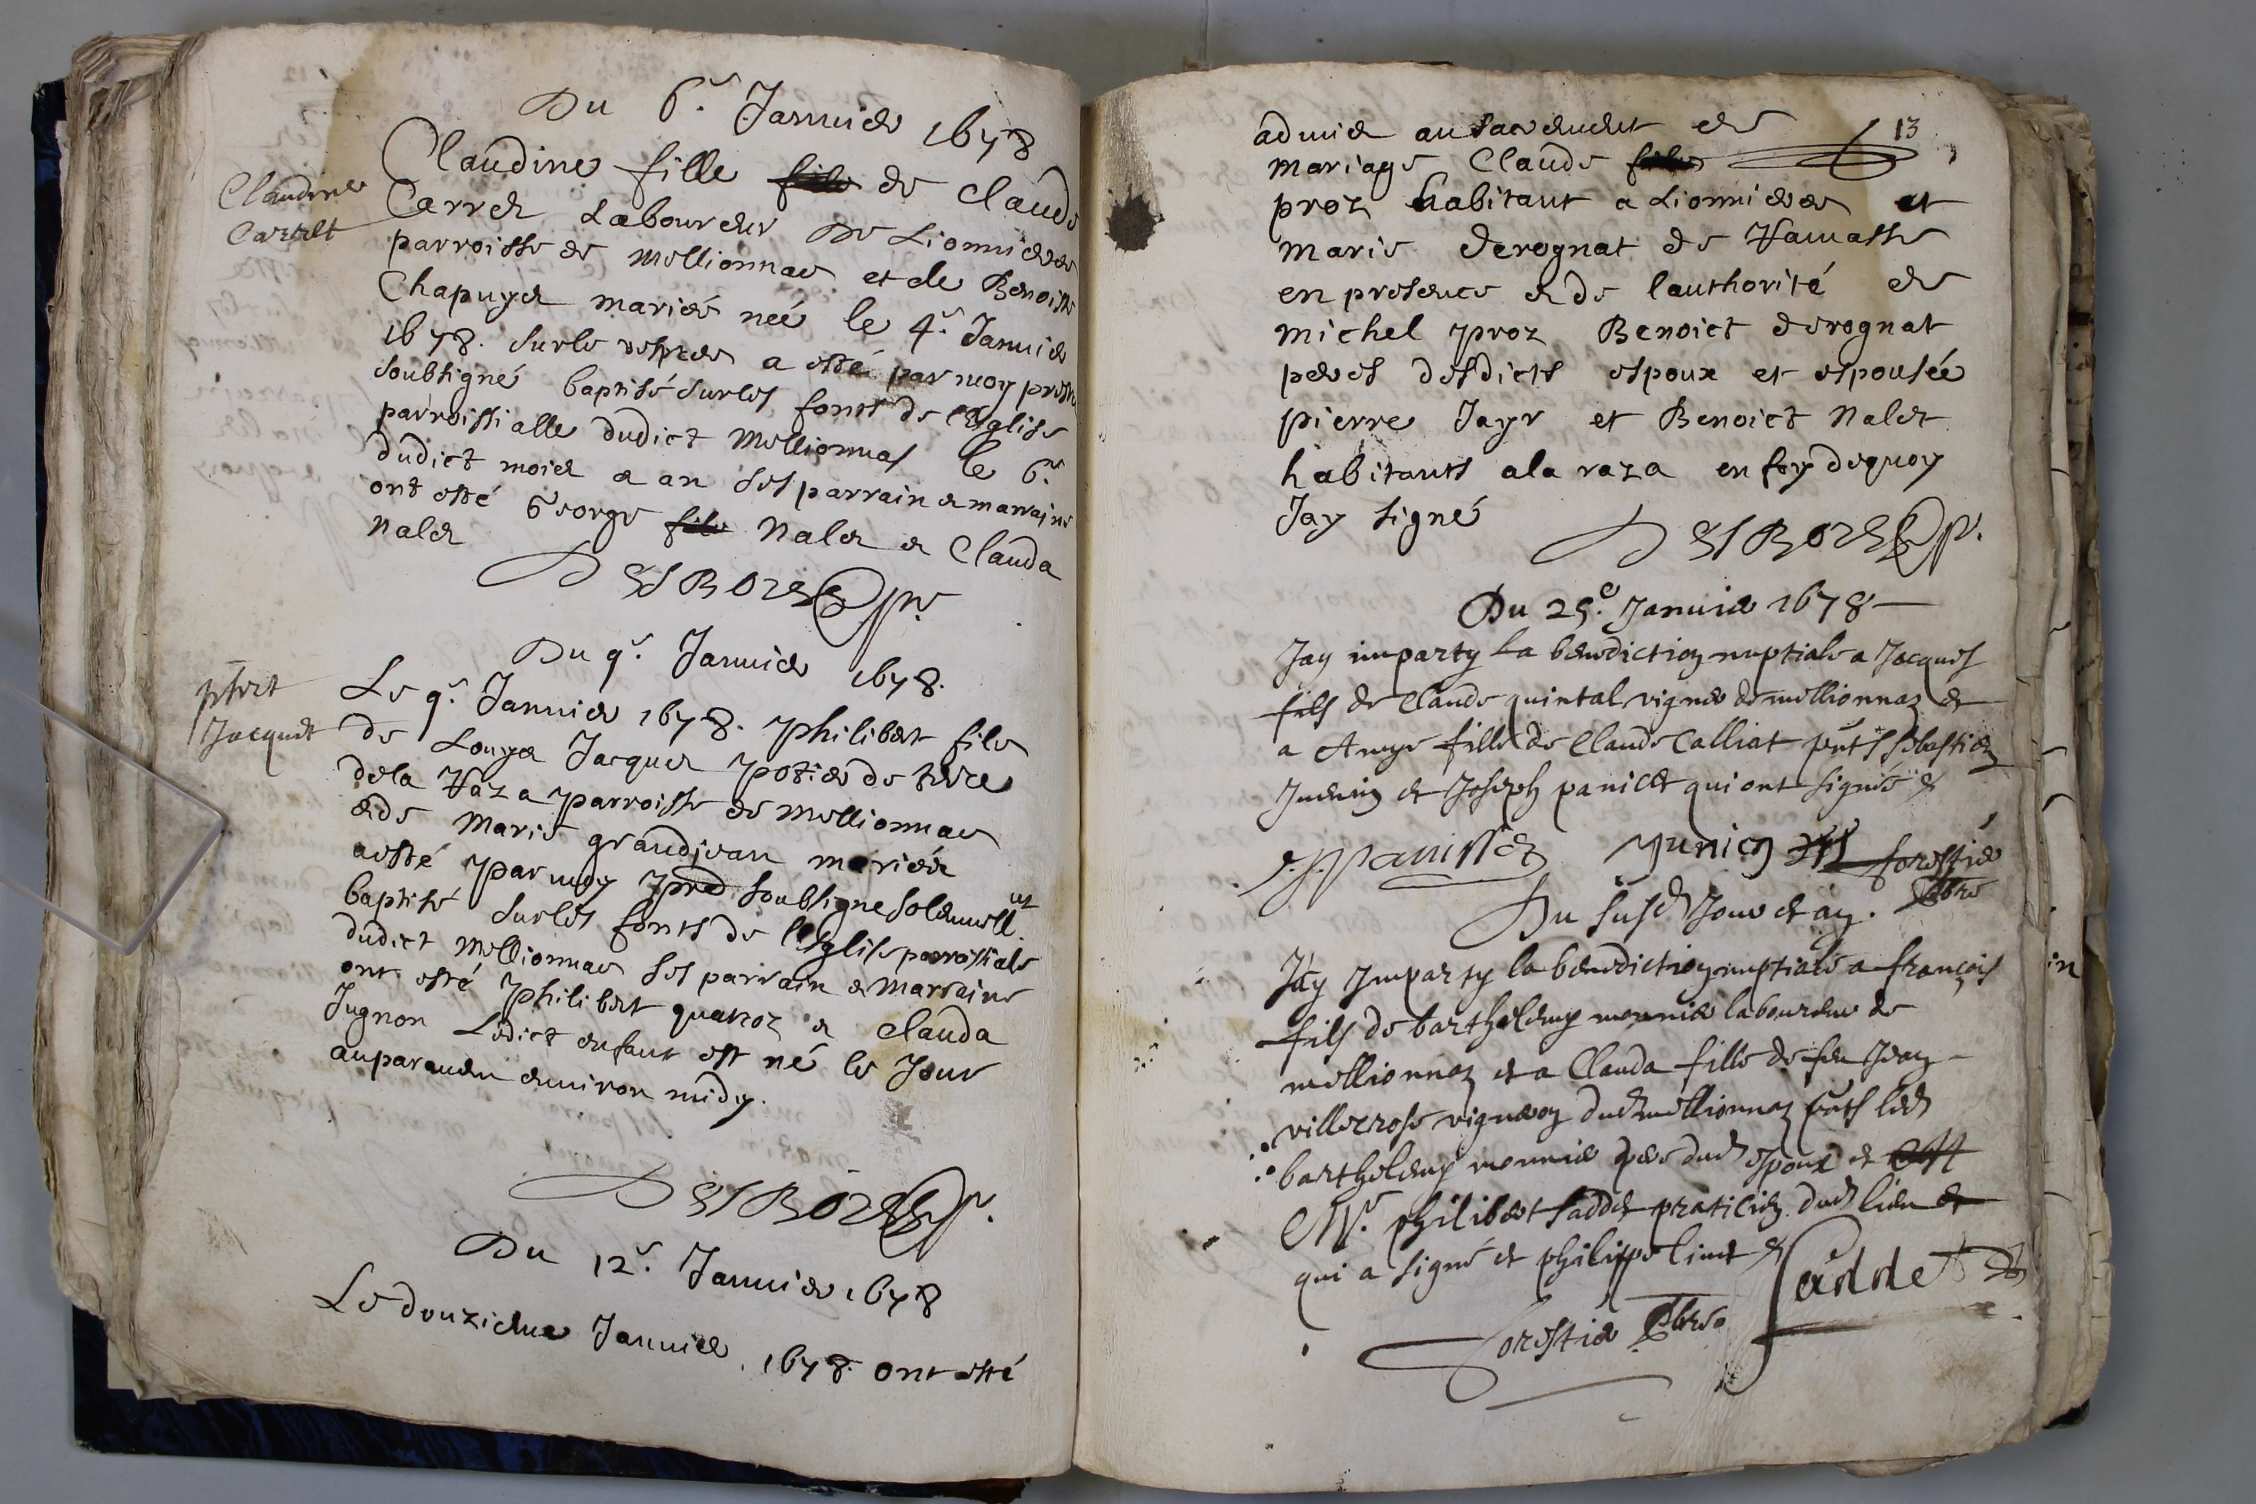 Du 6.e Januier 1678
Claudine
Carrelt
Claudine fille de Claude
Carrez Laboureur De Lionnieres
parroisse de Mellionnas et de Benoiste
Chapuyz mariés née le 4.e Januier
1678. sur le vespres a esté par moy prestre
soubsigné baptisé sur les fonts de l'Eglise
parroissialle dudict Mellionnas le 6.e
dudict moiez & an ses parrain & marraine
ont esté George Nalez & Clauda
Nalez
DESBORDES pre
Du 9.e Januier 1678.
phbert
Jacquet
Le 9.e Januier 1678. Philibert filz
de Louyz Jacquez potier de terre
de la Raza parroisse de Mellionnas
& de Marie grandjean mariéz
a esté par moy pred soubsigne solennellt
baptisé sur les fonts de l'Eglise parrossiale
dudict Mellionnas ses parrain & Marraine
ont esté Philibert quatroz & Clauda
Jugnon Ledict enfant est né le Jour
auparauen enuiron midy.
DESBORDES p.
Du 12.e Januier 1678
Le douzieme Januier 1678. ont esté
13
admiz au sacrement de
mariage Claude
proz habitant a Lionnieres et
Marie derognat de Ramasse
en presence & de lauthorité de
Michel proz Benoict derognat
peres desdicts espoux et espousée
pierre Jayr et Benoict Nalez
habitants a la raza en foy dequoy
Jay signé
DESBORDES p.
Du 25.e Januier 1678
Jay imparty la benediction nuptiale a Jacques
fils de Claude quintal vigner de mellionnaz et
a Amye fille de Claude Calliat pnts sebastien
Junenin et Joseph panicet qui ont signés &
J. panissez Junien forestier
pbre
Du susd Jour et an.
Jay Imparty la benediction nuptiale a françois
fils de barthelemy monnier laboureur de
mellionnaz et a Clauda fille de feu Jean
villerose vigneron dud mellionnaz pnts led
barthelemy monnier pere dud espoux et
Mr. philibert saddet praticien dud lieu et
qui a signé et philippe liuet & Saddet
forestier pbre